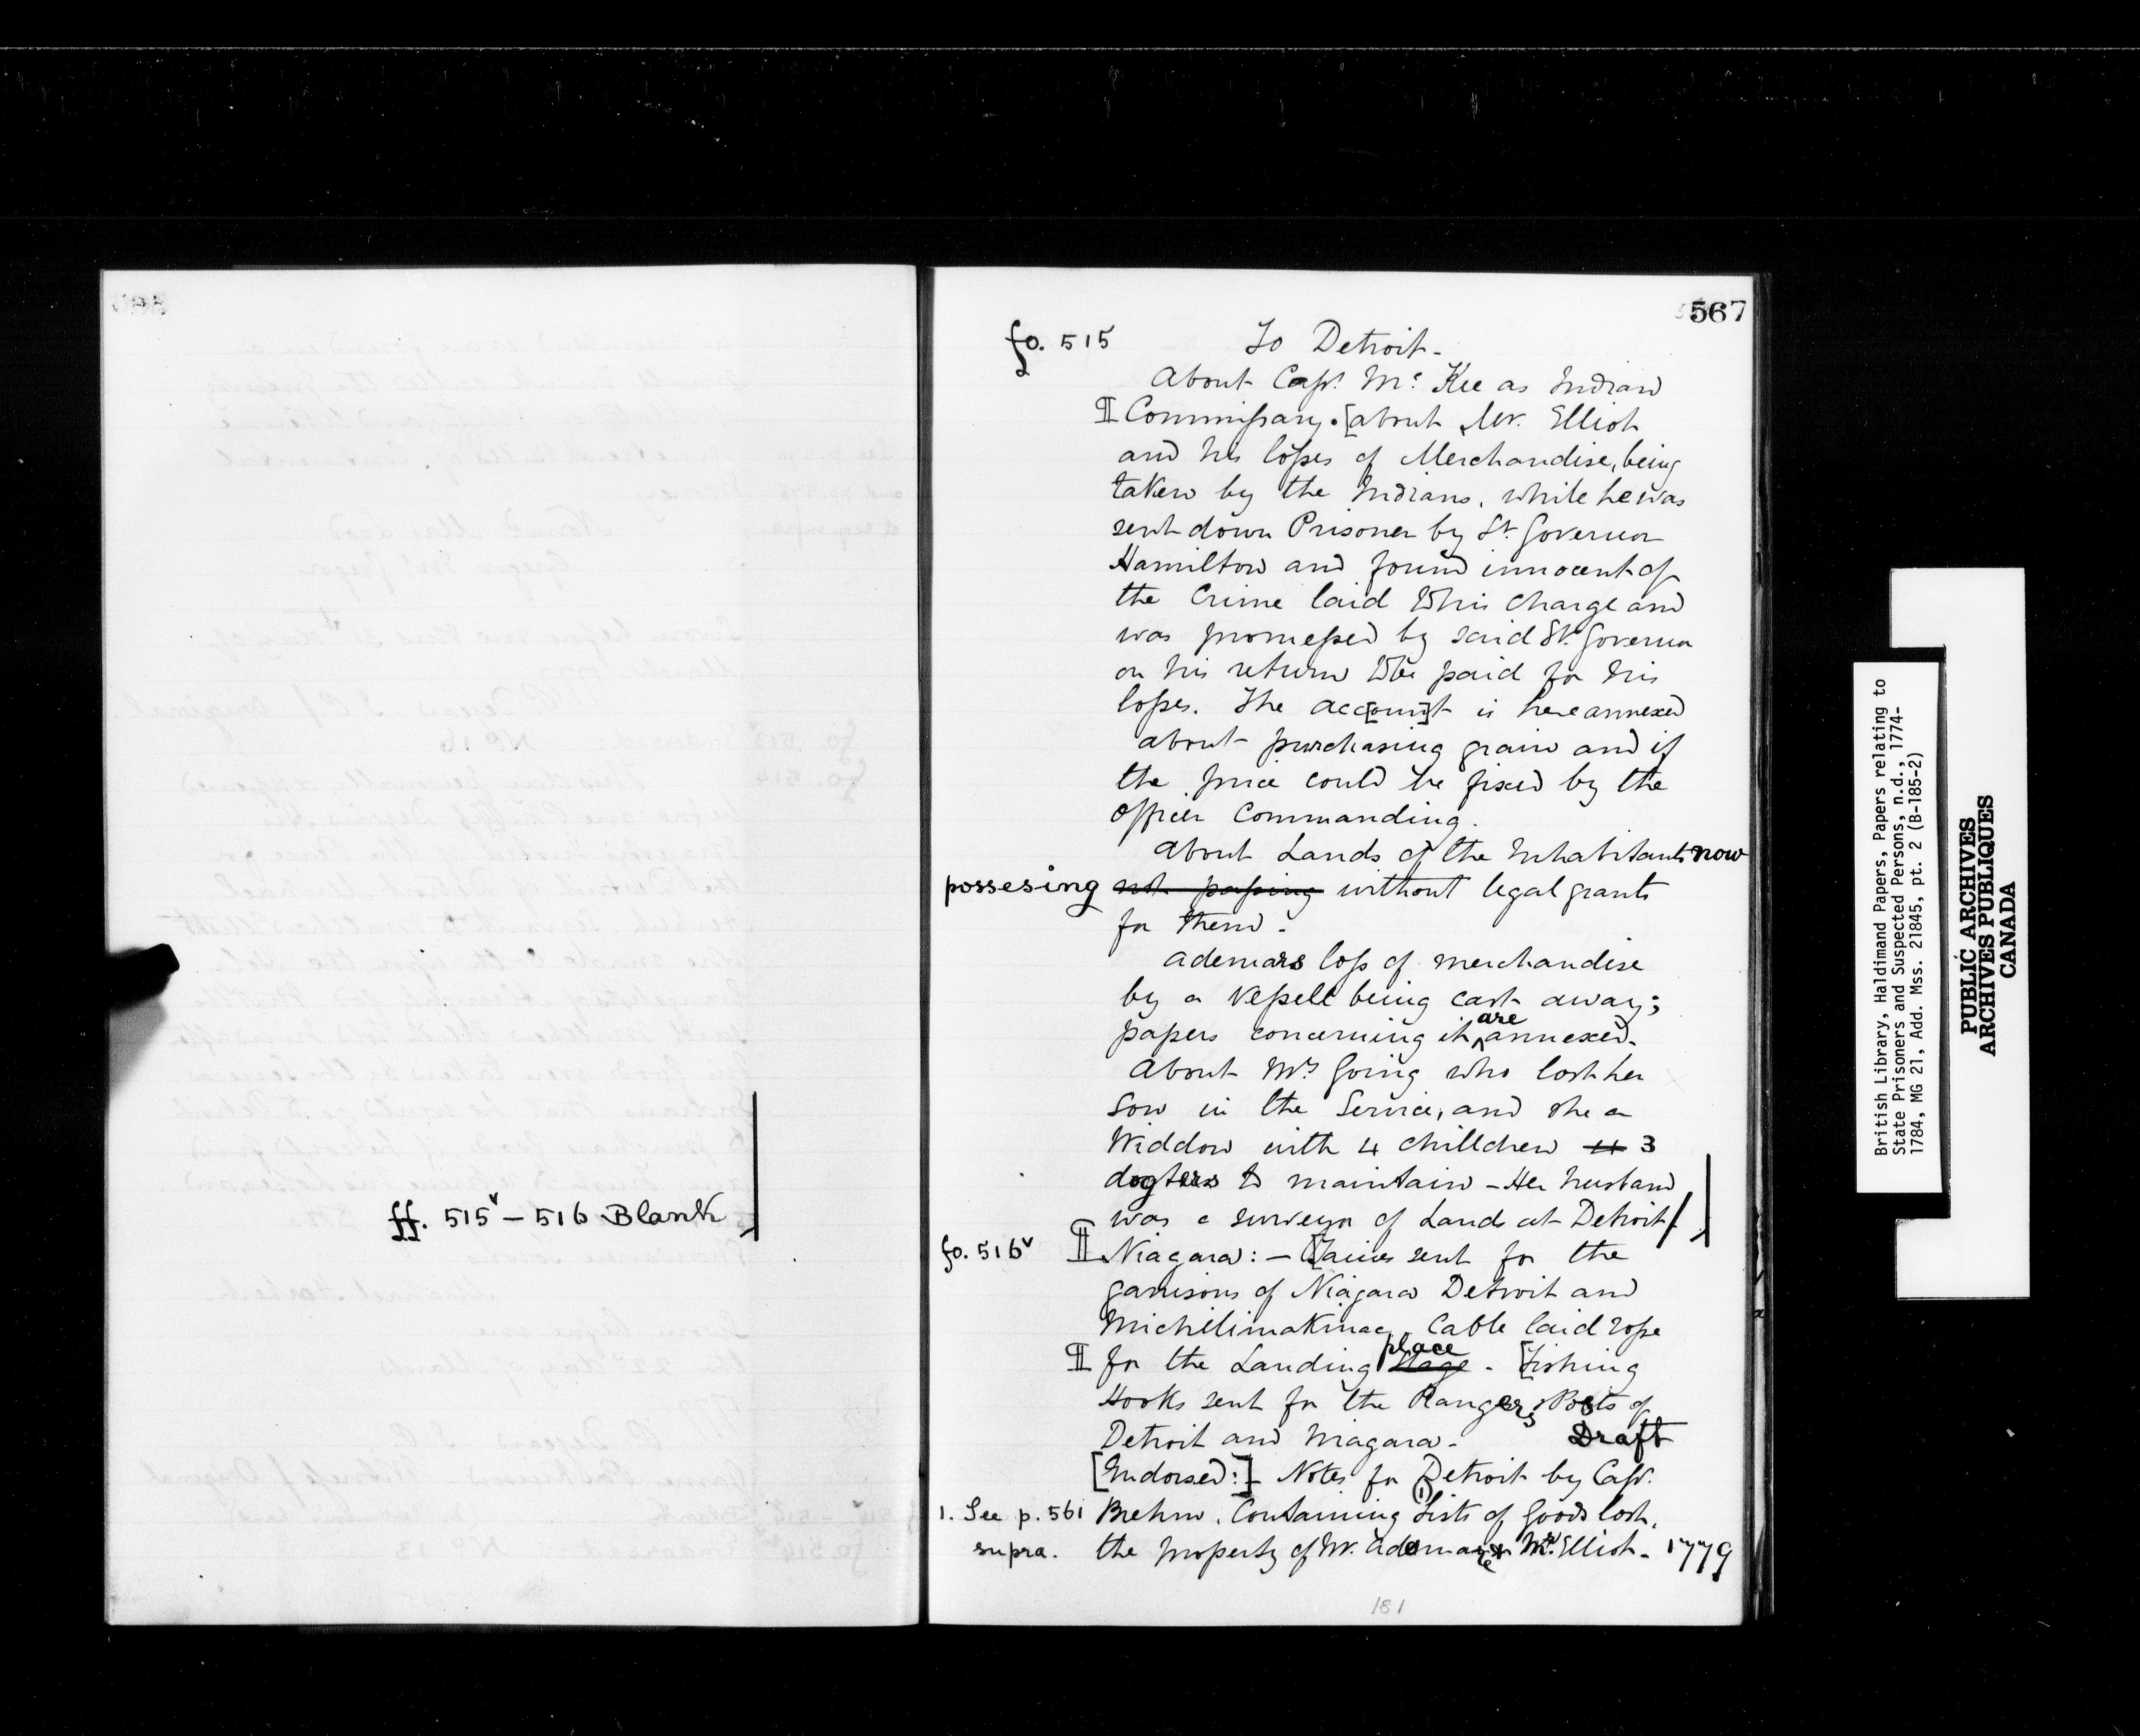 567
fo. 515 To Detroit-
About Capt. Mc Kee as Indian
¶ Commissary. [about Mr. Elliot
and his losses of Merchandise, being
taken by the Indians, while he was
sent down Prisoner by Lt. Governor
Hamilton and found innocent of
the Crime laid to his charge and
was promessed by said Lt. Governor
on his return to be paid for his
losses. The acc[oun]t is here annexed
about purchasing grain and if
the price could be fixed by the
Officer Commanding.
About Lands of the Inhabitants now
possesing not passing without legal grants
for them.
Ademars loss of merchandise
by a Vessell being cast away;
papers concerning it are annexed.
About Mrs Going who lost her
Son in the Service, and she a
Widdow with 4 chilldren 4 3
dogters to maintain - Her husband
was a surveyor of Lands at Detroit/.
ff. 515v - 516 Blank
fo. 516v ¶ Niagara: - [ sent for the
garrisons of Niagara Detroit and
Michilimakinac, Cable laid rope
¶ for the Landing place Stage - [Fishing
Hooks sent for the Rangers, Posts of
Detroit and Niagara- Draft
[Endorsed:]- Notes for Detroit by Capt.
1. See p. 561 Brehm, Containing (1) Lists of Goods lost,
supra. the property of Mr. Ademar & Mr. Elliot- 1779
181
British Library, Haldimand Papers, Papers relating to
State Prisoners and Suspected Persons, n.d., 1774-
1784, MG 21, Add. Mss. 21845, pt. 2 (B-185-2)
PUBLIC ARCHIVES
ARCHIVES PUBLIQUES
CANADA